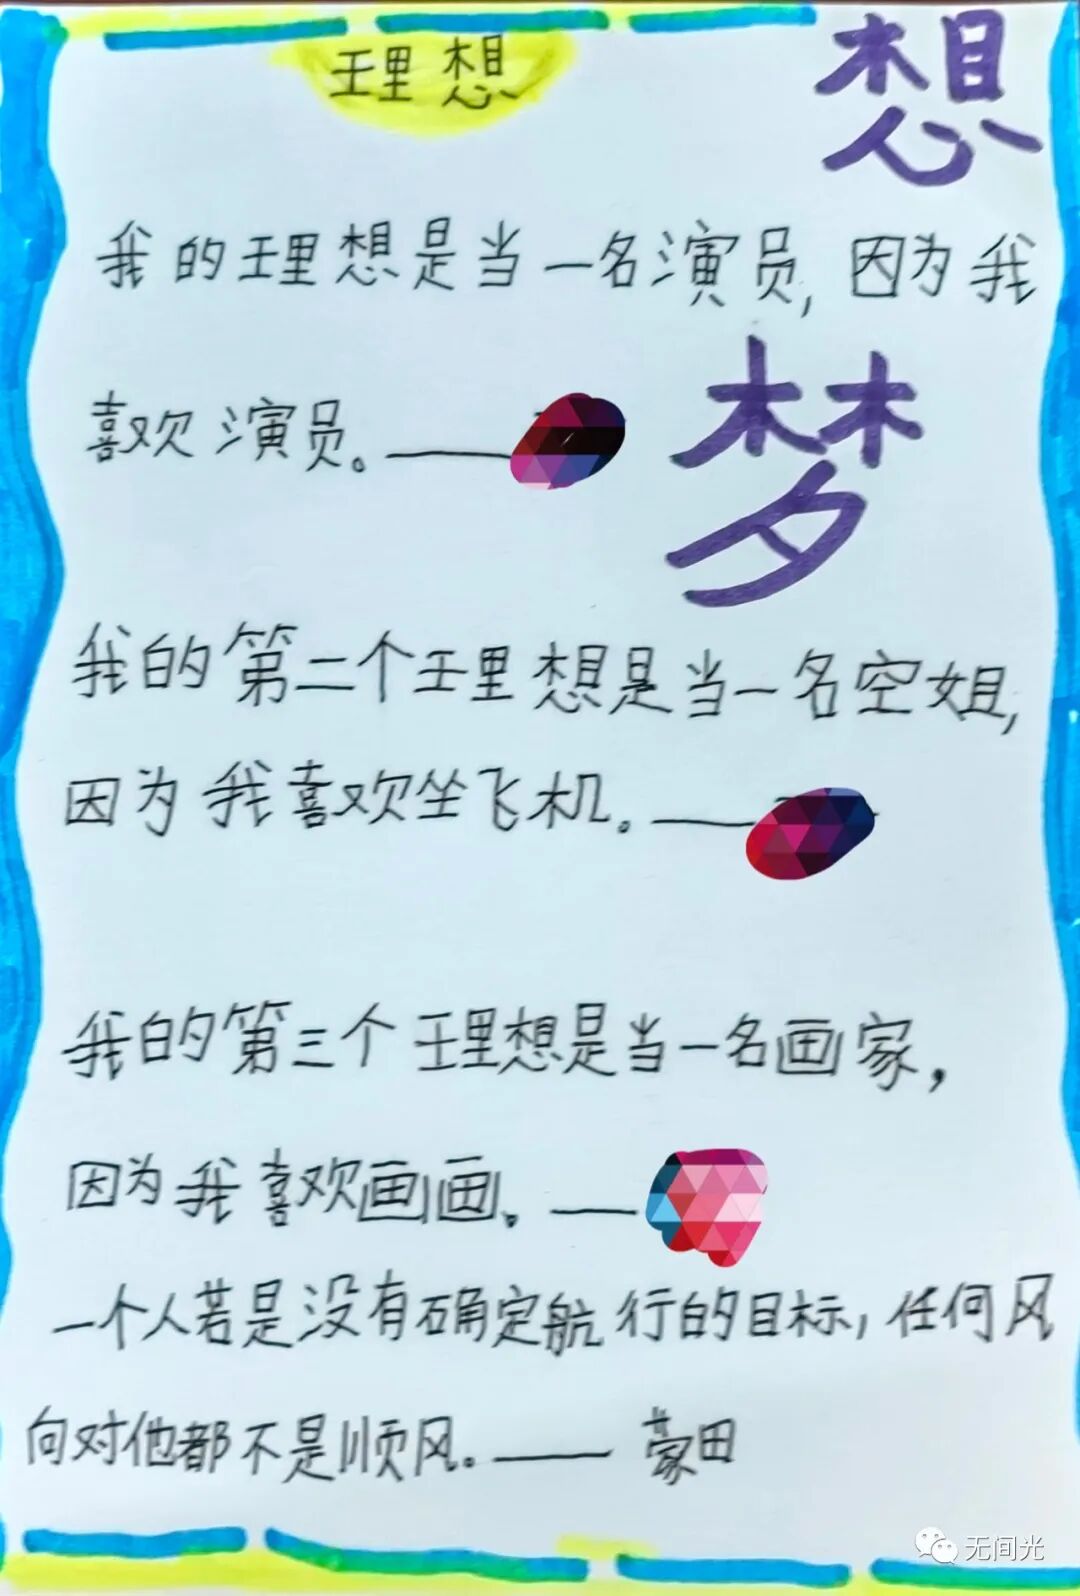 理想
想
我的理想是当一名演员,因为我
梦
喜欢演员。——
我的第二个理想是当一名空姐,
因为我喜欢坐飞机。——
我的第三个理想是当一名画家,
因为我喜欢画画。——
一个人若是没有确定航行的目标,任何风
向对他都不是顺风。——蒙田
无间光